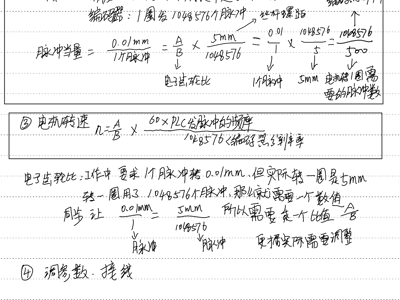 编码器：1圈发1048576个脉冲 → 丝杆螺距
脉冲当量 = 0.01mm/1个脉冲 = A/B × 5mm/1048576 = 0.01/1 × 1048576/5 = 1048576/500
电子齿轮比 1个脉冲 5mm 电机转1圈需
要的脉冲数
③ 电机转速 n = A/B × 60×PLC发脉冲的频率/1048576 <编码器分辨率
电子齿轮比：工作中 要求 1个脉冲转 0.01mm，但实际转一圈是5mm
转一圈用了 1048576个脉冲，那么就需要一个数值
同步 让 0.01mm/1 = 5mm/1048576 所以需要 一个比值 A/B
脉冲 脉冲 实际需要调整
④ 调参数、接线